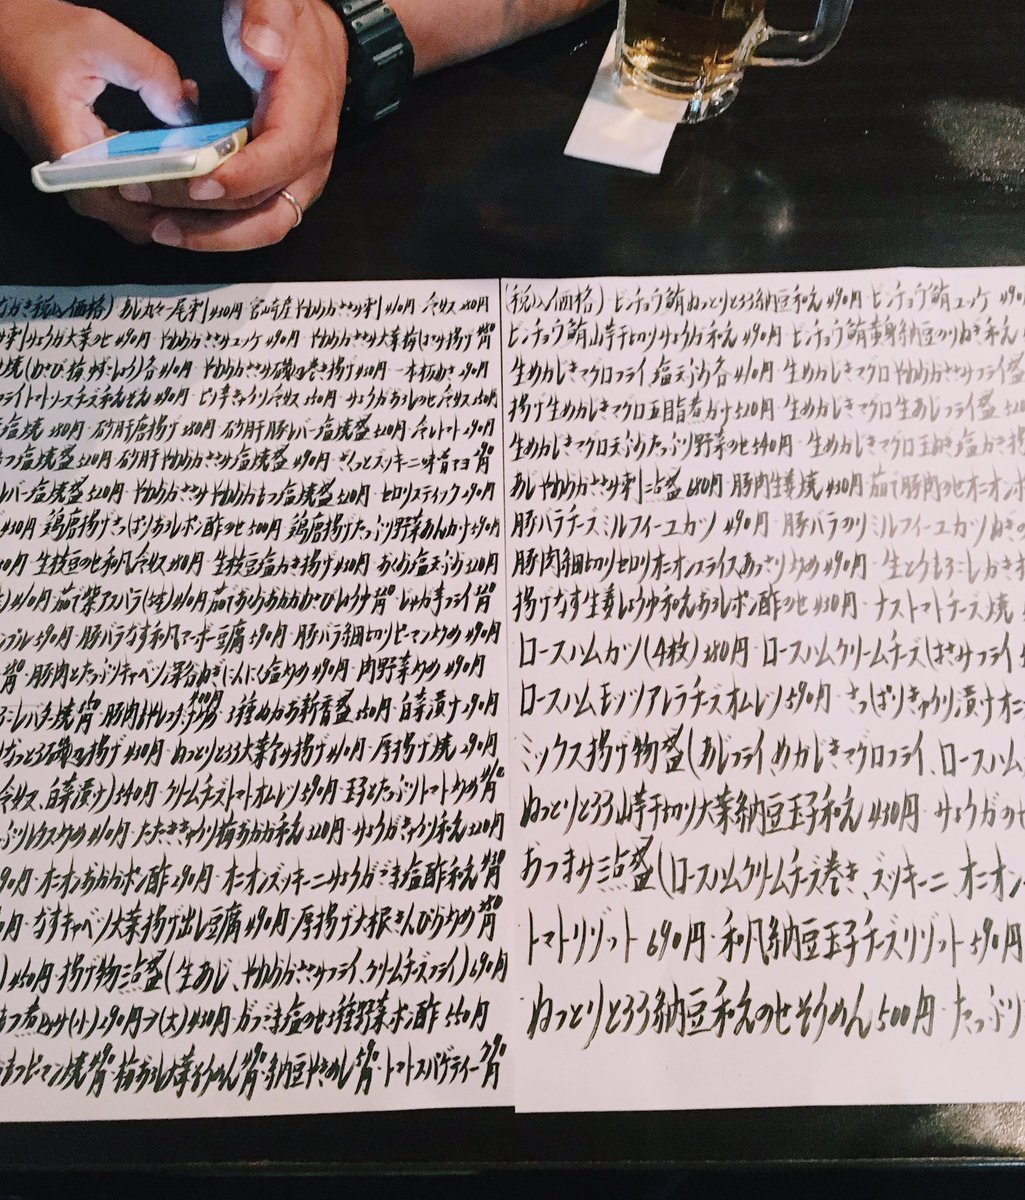 税込価格) あじ丸々一尾刺 430円 宮崎産やわらかささみ刺 410円 冷奴 280円
みょうが大葉のせ 490円 やわらかささみユッケ 490円 やわらかささみ大葉梅はさみ揚げ
焼(わさび・梅・ゆずこしょう)各410円 やわらかささみ磯辺巻き揚げ 430円 一本
フライトマトソースチーズ 490円 ピリ辛きゅうり冷奴 350円 みょうがおろしのせ冷奴 350円
塩焼 380円 砂肝唐揚げ 380円 砂肝豚レバー塩焼盛 520円 冷しトマト 290円
もつ塩焼盛 520円 砂肝やわらかささみ塩焼盛 490円 さくっとズッキーニ味噌マヨ
レバー塩焼盛 520円 やわらかささみやわらかもつ塩焼盛 520円 セロリスティック 290円
430円 鶏唐揚げさっぱりおろしポン酢のせ 500円 鶏唐揚げたっぷり野菜あんかけ 590円
生枝豆のせ和風冷奴 380円 生枝豆塩かき揚げ 430円 おくら塩天ぷら 320円
410円 茹で紫アスパラ(塩) 410円 茹でおくらおかかわさびじょうゆ じゃが芋フライ
590円 豚バラなす和風マーボー豆腐 590円 豚バラ細切りピーマン炒め 490円
豚肉とたっぷりキャベツ深谷ねぎにんにく塩炒め 490円 肉野菜炒め 490円
豚肉もやし 3種ぬかお新香盛 350円 白菜漬け 290円
なっとう磯辺揚げ 430円 ねっとりとろろ大葉包み揚げ 410円 厚揚げ焼 290円
冷奴、白菜漬け) 540円 クリームチーズトマトオムレツ 590円 玉子とたっぷりトマト炒め
410円 たたききゅうり梅おかか和え 320円 みょうがきゅうり和え 320円
オニオンおかかポン酢 290円 オニオンズッキーニみょうがごま塩酢和え
なすキャベツ大葉揚げ出し豆腐 490円 厚揚げ大根きんぴら炒め
450円 揚げ物三点盛(生あじ、やわらかささみフライ、クリームチーズフライ) 690円
もつ煮込み(小)290円→(大)430円 かつごま塩のせ3種野菜ポン酢 550円
もつピーマン焼 梅おろし大葉そうめん 納豆やきめし トマトスパゲティー
(税込価格) ビンチョウ鮪ねっとりとろろ納豆和え 490円 ビンチョウ鮪ユッケ 490円
ビンチョウ鮪山芋千切りみょうが和え 490円 ビンチョウ鮪黄身納豆のりねぎ和え
生めかじきマグロフライ、塩天ぷら各410円 生めかじきマグロやわらかささみフライ盛
揚げ生めかじきマグロ五目旨煮かけ 520円 生めかじきマグロ生あじフライ盛 520円
生めかじきマグロ天ぷらたっぷり野菜のせ 540円 生めかじきマグロ玉ねぎ塩かき揚
あじやわらかささみ刺二点盛 680円 豚肉生姜焼 430円 茹で豚肉のせオニオンポン
豚バラチーズミルフィーユカツ 490円 豚バラのりミルフィーユカツねぎの
豚肉細切りセロリオニオンスライスあっさり炒め 490円 生とうもろこしかき揚
揚げなす生姜じょうゆ和えおろしポン酢のせ 430円 ナストマトチーズ焼
ロースハムカツ(4枚) 380円 ロースハムクリームチーズはさみフライ
ロースハムモッツァレラチーズオムレツ 590円 さっぱりきゅうり漬けオニ
ミックス揚げ物盛(あじフライ、めかじきマグロフライ、ロースハム
ねっとりとろろ山芋千切り大葉納豆玉子和え 430円 みょうがのせ
おつまみ三点盛(ロースハムクリームチーズ巻き、ズッキーニ、オニオン
トマトリゾット 690円 和風納豆玉子チーズリゾット 590円
ねっとりとろろ納豆和えのせそうめん 500円 たっぷり